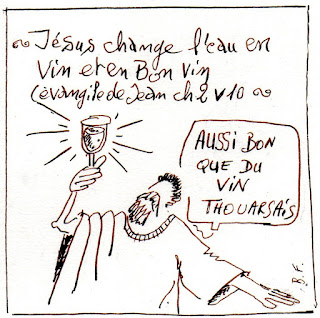 Jésus change l'eau en
Vin et en Bon Vin
(évangile de Jean ch 2 v 10
AUSSI BON
QUE DU
VIN
THOUARSAIS
B.F.